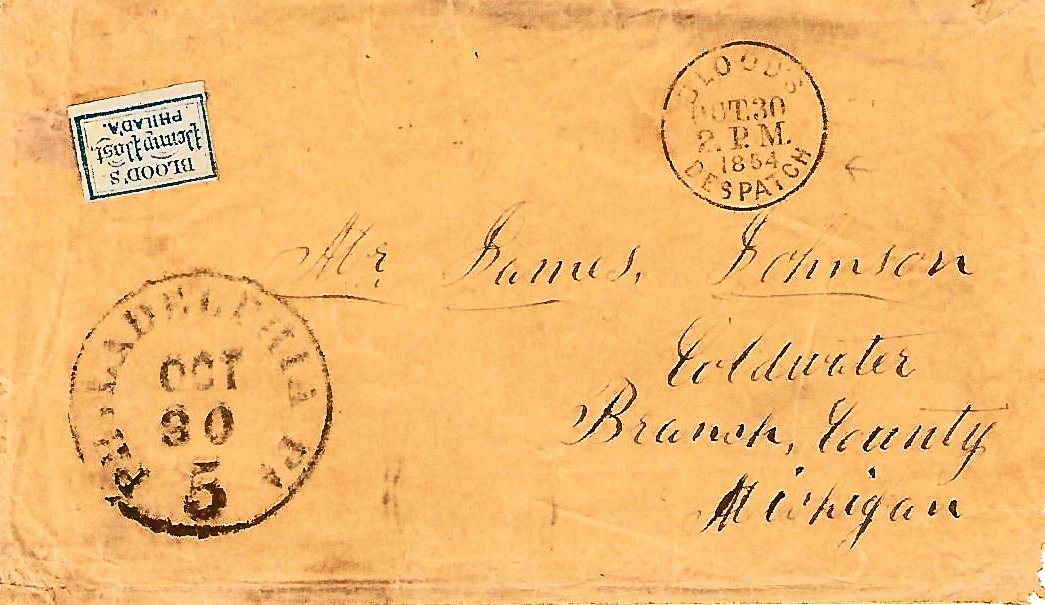 BLOOD'S
Penny Post,
PHILAD'A.
BLOOD'S
OCT. 30
2 P. M.
1854
DESPATCH
Mr James, Johnson
Coldwater
Branch, County
Michigan
PHILADELPHIA PA
OCT
30
5